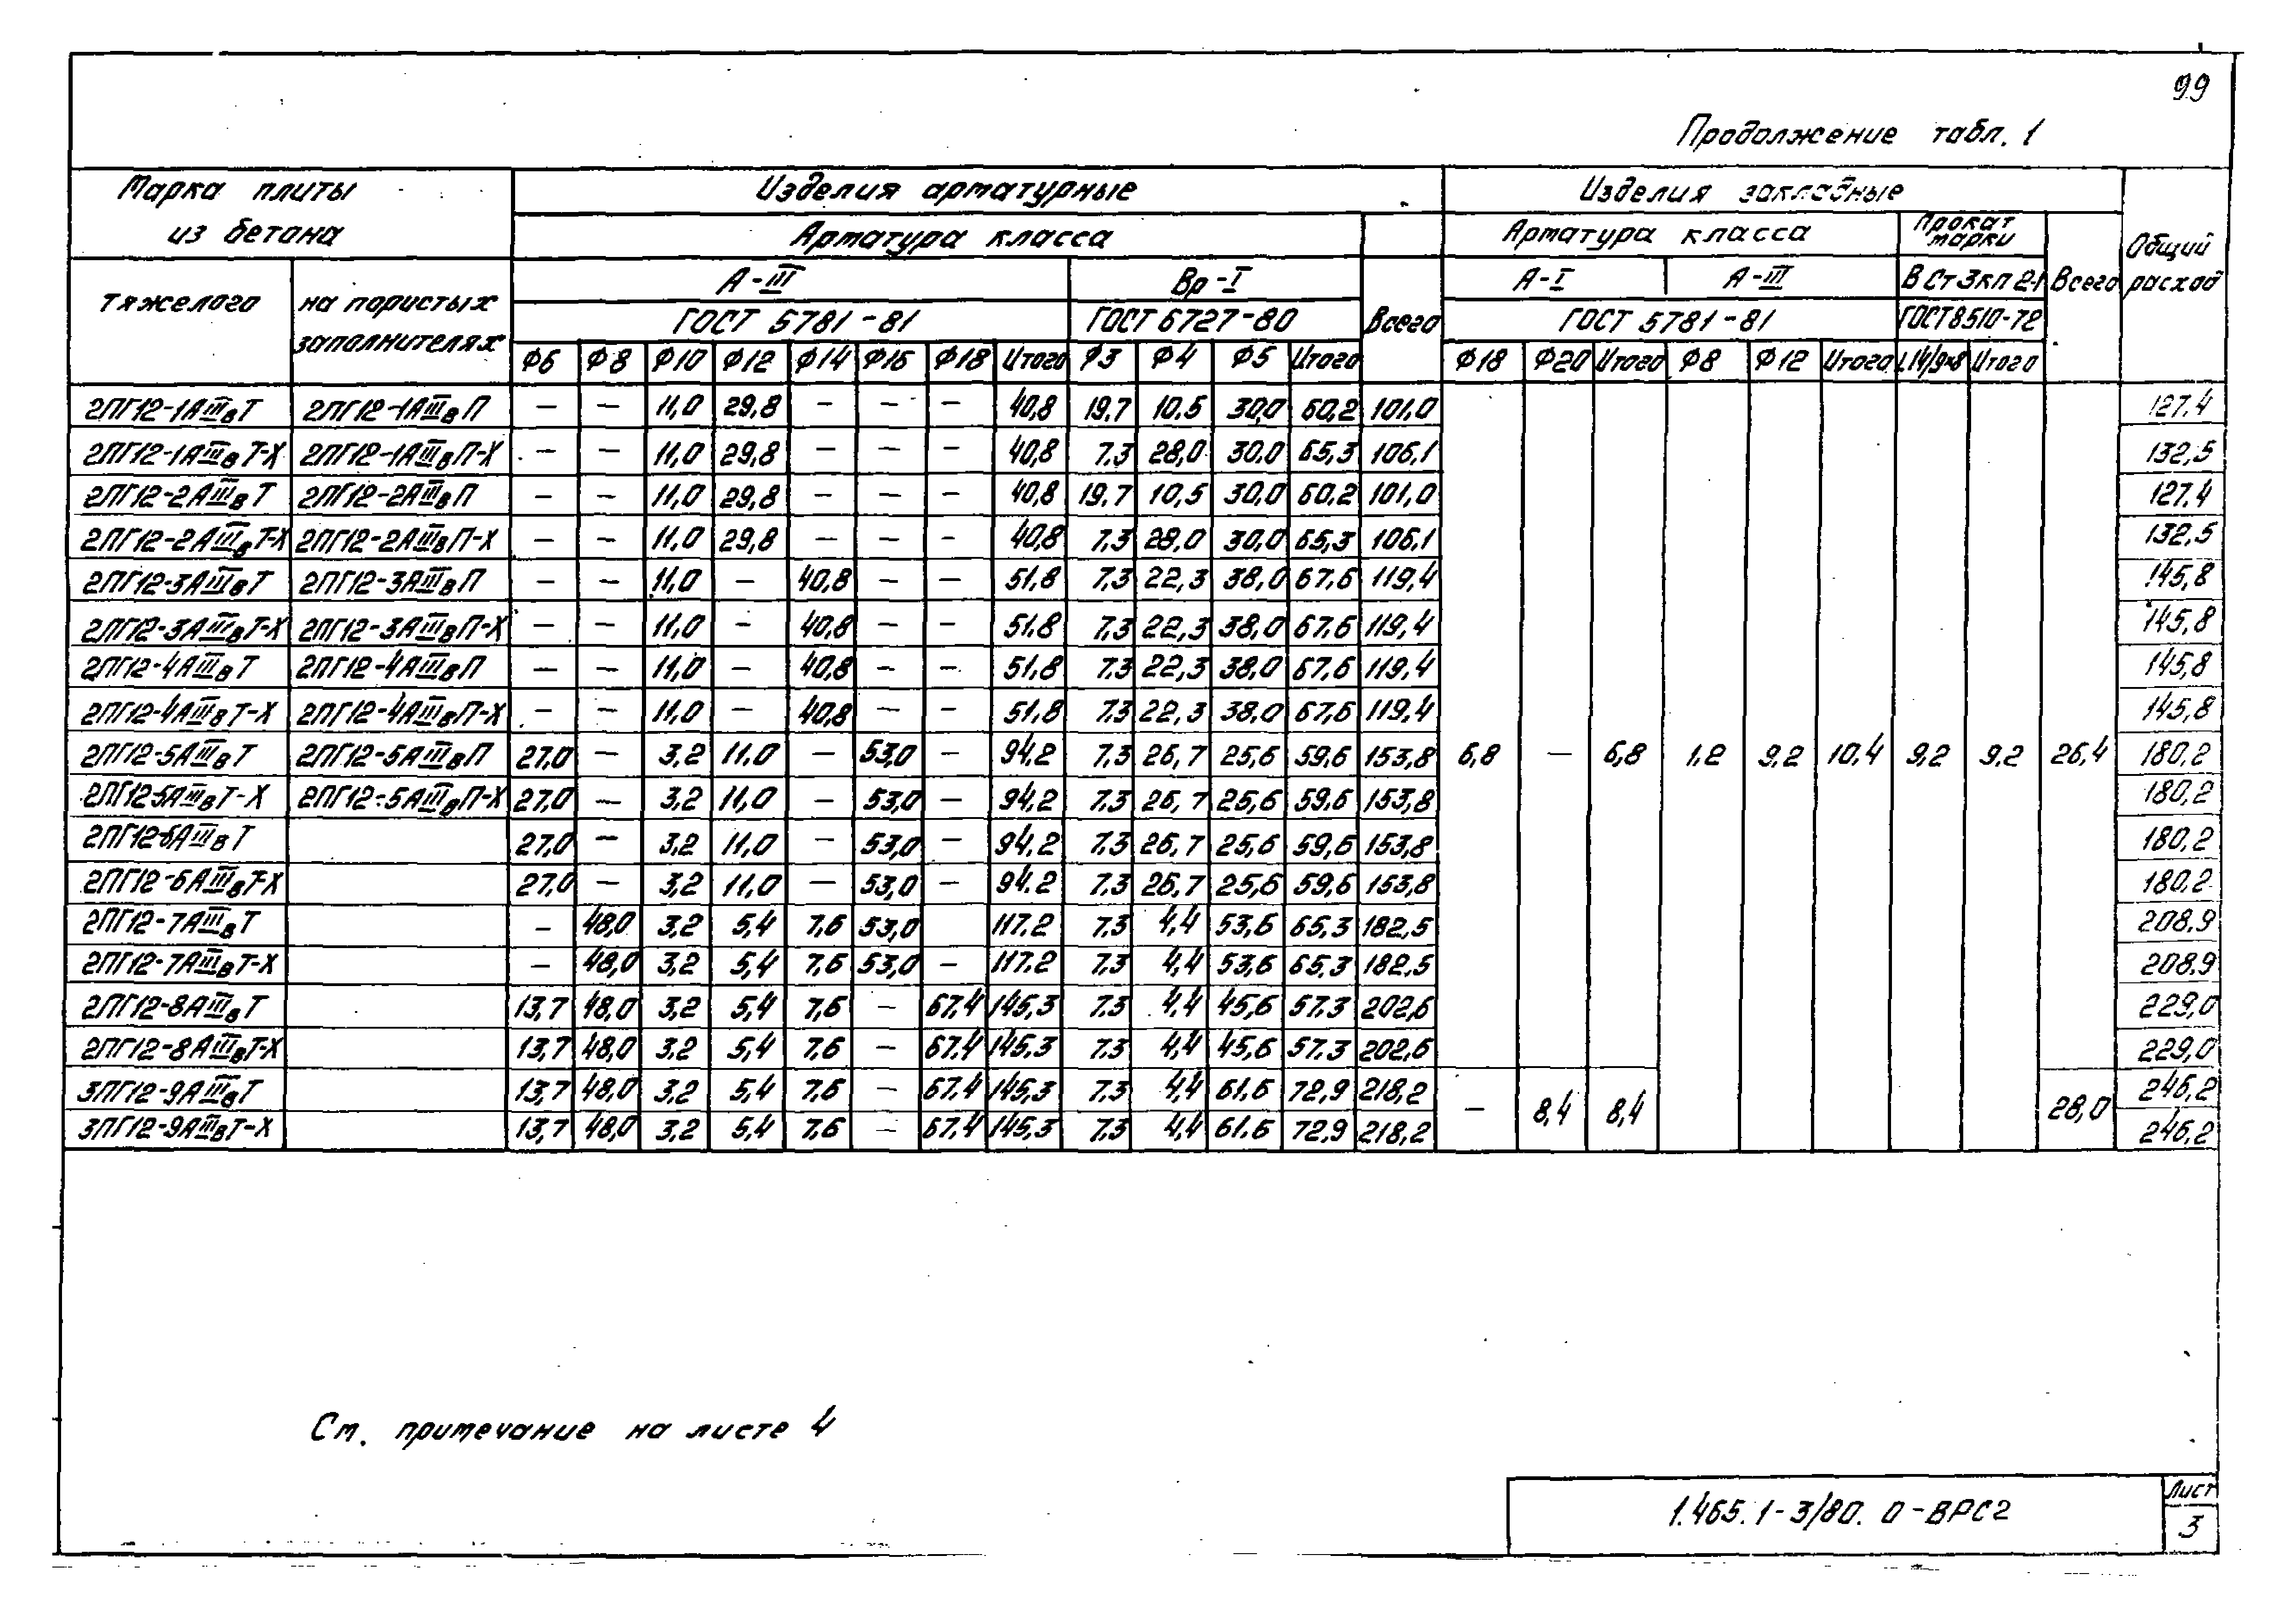 99
Продолжение табл. 1
Марка плиты из бетона | Изделия арматурные | Изделия закладные | Общий расход
Арматура класса | Всего | Арматура класса | Прокат марки | Всего
тяжелого | на пористых заполнителях | А-III | Вр-I | А-I | А-III | ВСт3кп2-1
ГОСТ 5781-81 | ГОСТ 6727-80 | ГОСТ 5781-81 | ГОСТ 8510-72
Ф6 | Ф8 | Ф10 | Ф12 | Ф14 | Ф16 | Ф18 | Итого | Ф3 | Ф4 | Ф5 | Итого | Ф18 | Ф20 | Итого | Ф8 | Ф12 | Итого | Итого
2ПГ12-1АIIIвТ | 2ПГ12-1АIIIвП | — | — | 11,0 | 29,8 | — | — | — | 40,8 | 19,7 | 10,5 | 30,0 | 60,2 | 101,0 | 127,4
2ПГ12-1АIIIвТ-Х | 2ПГ12-1АIIIвП-Х | — | — | 11,0 | 29,8 | — | — | — | 40,8 | 7,3 | 28,0 | 30,0 | 65,3 | 106,1 | 132,5
2ПГ12-2АIIIвТ | 2ПГ12-2АIIIвП | — | — | 11,0 | 29,8 | — | — | — | 40,8 | 19,7 | 10,5 | 30,0 | 60,2 | 101,0 | 127,4
2ПГ12-2АIIIвТ-Х | 2ПГ12-2АIIIвП-Х | — | — | 11,0 | 29,8 | — | — | — | 40,8 | 7,3 | 28,0 | 30,0 | 65,3 | 106,1 | 132,5
2ПГ12-3АIIIвТ | 2ПГ12-3АIIIвП | — | — | 11,0 | — | 40,8 | — | — | 51,8 | 7,3 | 22,3 | 38,0 | 67,6 | 119,4 | 145,8
2ПГ12-3АIIIвТ-Х | 2ПГ12-3АIIIвП-Х | — | — | 11,0 | — | 40,8 | — | — | 51,8 | 7,3 | 22,3 | 38,0 | 67,6 | 119,4 | 145,8
2ПГ12-4АIIIвТ | 2ПГ12-4АIIIвП | — | — | 11,0 | — | 40,8 | — | — | 51,8 | 7,3 | 22,3 | 38,0 | 67,6 | 119,4 | 145,8
2ПГ12-4АIIIвТ-Х | 2ПГ12-4АIIIвП-Х | — | — | 11,0 | — | 40,8 | — | — | 51,8 | 7,3 | 22,3 | 38,0 | 67,6 | 119,4 | 145,8
2ПГ12-5АIIIвТ | 2ПГ12-5АIIIвП | 27,0 | — | 3,2 | 11,0 | — | 53,0 | — | 94,2 | 7,3 | 26,7 | 25,6 | 59,6 | 153,8 | 6,8 | — | 6,8 | 1,2 | 9,2 | 10,4 | 9,2 | 9,2 | 26,4 | 180,2
2ПГ12-5АIIIвТ-Х | 2ПГ12-5АIIIвП-Х | 27,0 | — | 3,2 | 11,0 | — | 53,0 | — | 94,2 | 7,3 | 26,7 | 25,6 | 59,6 | 153,8 | 180,2
2ПГ12-6АIIIвТ | 27,0 | — | 3,2 | 11,0 | — | 53,0 | — | 94,2 | 7,3 | 26,7 | 25,6 | 59,6 | 153,8 | 180,2
2ПГ12-6АIIIвТ-Х | 27,0 | — | 3,2 | 11,0 | — | 53,0 | — | 94,2 | 7,3 | 26,7 | 25,6 | 59,6 | 153,8 | 180,2
2ПГ12-7АIIIвТ | — | 48,0 | 3,2 | 5,4 | 7,6 | 53,0 | 117,2 | 7,3 | 4,4 | 53,6 | 65,3 | 182,5 | 208,9
2ПГ12-7АIIIвТ-Х | — | 48,0 | 3,2 | 5,4 | 7,6 | 53,0 | — | 117,2 | 7,3 | 4,4 | 53,6 | 65,3 | 182,5 | 208,9
2ПГ12-8АIIIвТ | 13,7 | 48,0 | 3,2 | 5,4 | 7,6 | — | 67,4 | 145,3 | 7,3 | 4,4 | 45,6 | 57,3 | 202,6 | 229,0
2ПГ12-8АIIIвТ-Х | 13,7 | 48,0 | 3,2 | 5,4 | 7,6 | — | 67,4 | 145,3 | 7,3 | 4,4 | 45,6 | 57,3 | 202,6 | 229,0
3ПГ12-9АIIIвТ | 13,7 | 48,0 | 3,2 | 5,4 | 7,6 | — | 67,4 | 145,3 | 7,3 | 4,4 | 61,6 | 72,9 | 218,2 | — | 8,4 | 8,4 | 28,0 | 246,2
3ПГ12-9АIIIвТ-Х | 13,7 | 48,0 | 3,2 | 5,4 | 7,6 | — | 67,4 | 145,3 | 7,3 | 4,4 | 61,6 | 72,9 | 218,2 | 246,2
См. примечание на листе 4
1.465.1-3/80. 0-ВРС2
Лист
3